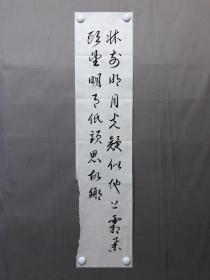 牀前明月光疑似地上霜举
頭望明月低頭思故鄉